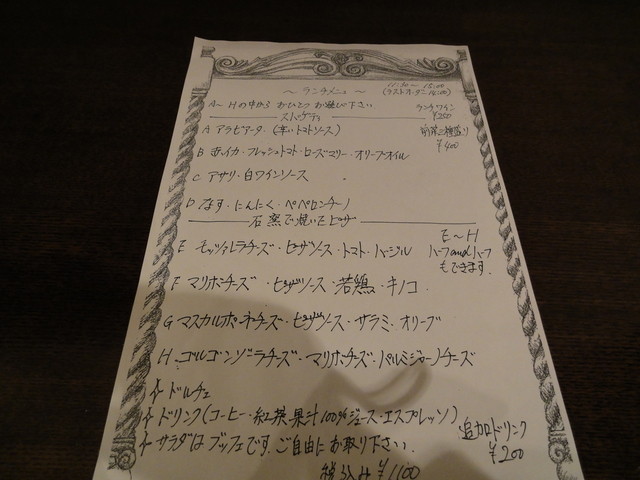 ～ランチメニュー～
11:30～15:00
(ラストオーダー 14:00)
A～Hの中から おひとつ お選び下さい
ランチワイン
¥250
スパゲティ
A アラビアータ・(辛いトマトソース)
前菜三種盛り
¥400
B 赤イカ・フレッシュトマト・ローズマリー・オリーブオイル
C アサリ・白ワインソース
D なす・にんにく・ペペロンチーノ
石窯で焼いたピザ
E モッツァレラチーズ・ピザソース・トマト・バージル
E～H
ハーフandハーフ
もできます.
F マリボチーズ・ピザソース・若鶏・キノコ
G マスカルポーネチーズ・ピザソース・サラミ・オリーブ
H ゴルゴンゾーラチーズ・マリボチーズ・パルミジャーノチーズ
+ ドルチェ
+ ドリンク(コーヒー・紅茶・果汁100%ジュース・エスプレッソ)
+ サラダは ブッフェです.ご自由にお取り下さい.
追加ドリンク
¥200
税込み ¥1100